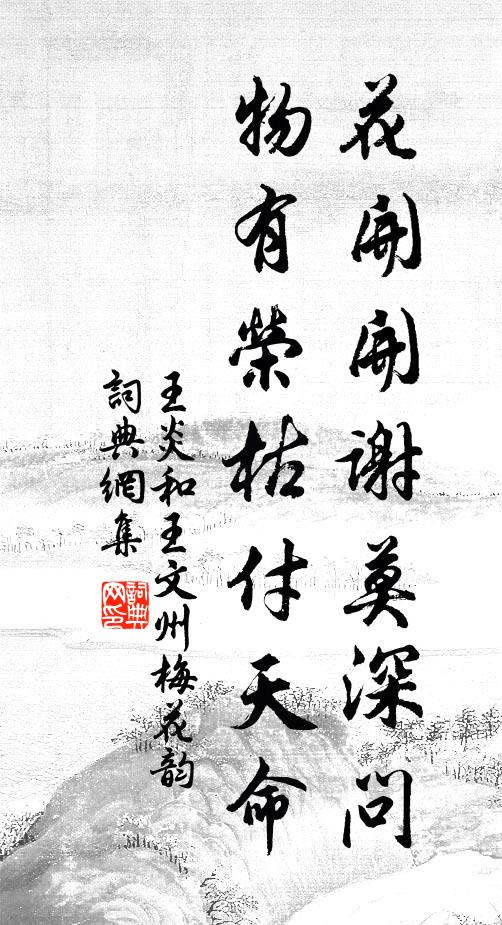 花開開謝莫深問
物有榮枯付天命
王炎和王文州梅花韵
詞典網集
詞典網印